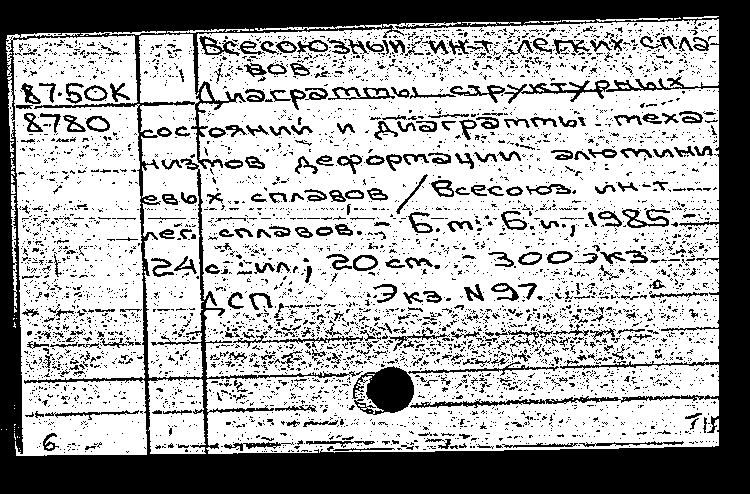 Всесоюзный ин-т легких спла-
вов.
87-50К Диаграммы структурных
8780 состояний и диаграммы меха-
низмов деформации алюмини-
евых сплавов / Всесоюз. ин-т
лег. сплавов. - Б.м.: Б.и., 1985.-
124 с.: ил.; 20 см. - 300 экз.
ДСП. Экз. N 97.
6